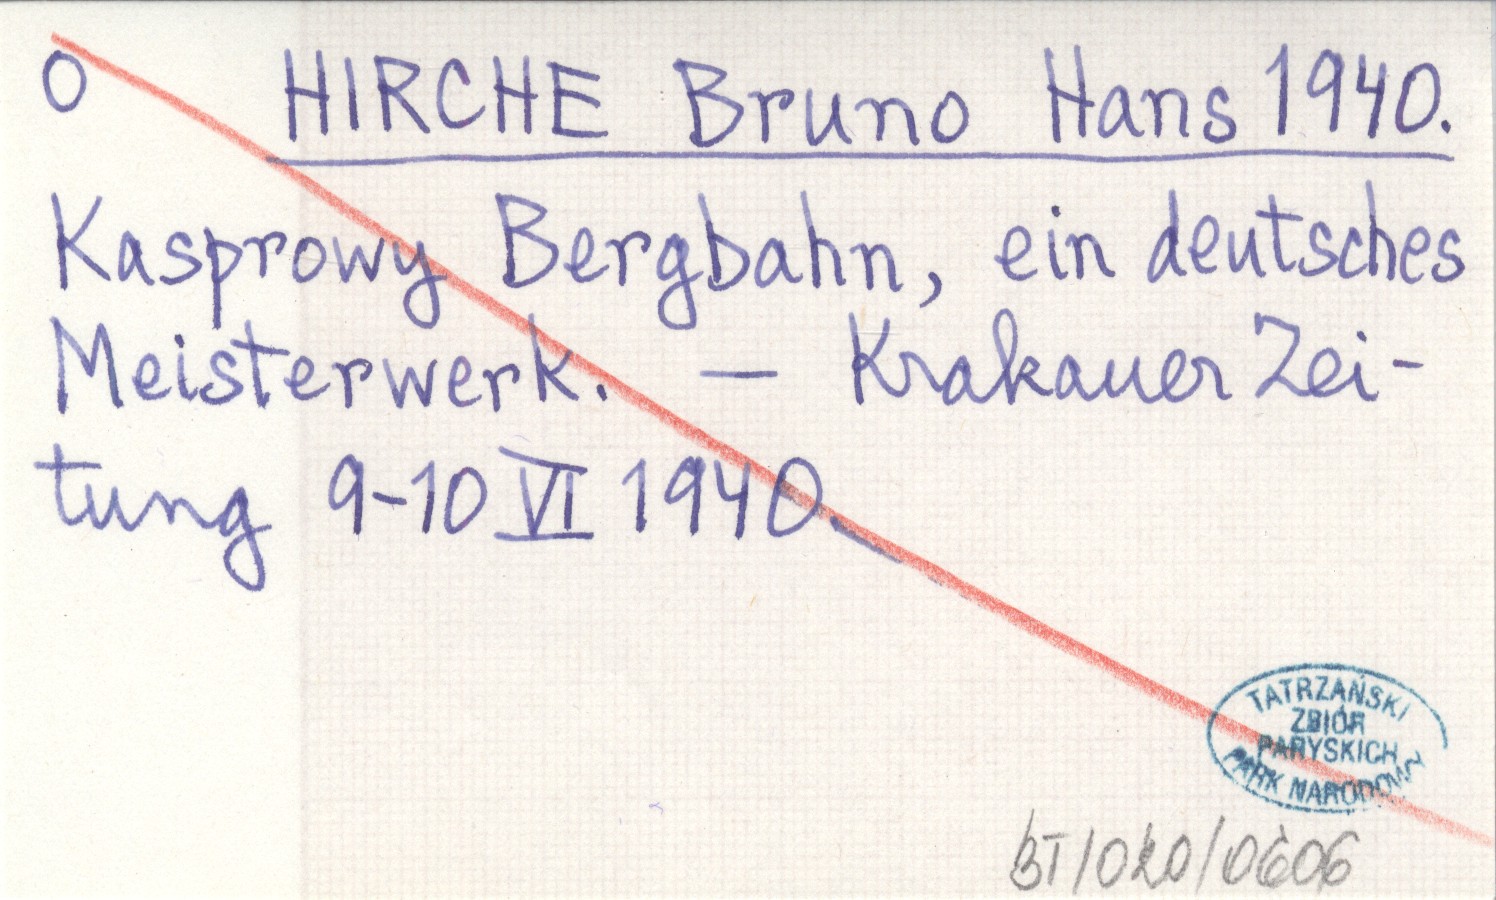 O HIRCHE Bruno Hans 1940.
Kasprowy Bergbahn, ein deutsches
Meisterwerk. — Krakauer Zei-
tung 9-10 VI 1940.
TATRZAŃSKI
ZBIÓR
PARYSKICH
PARK NARODOWY
BT/020/0606